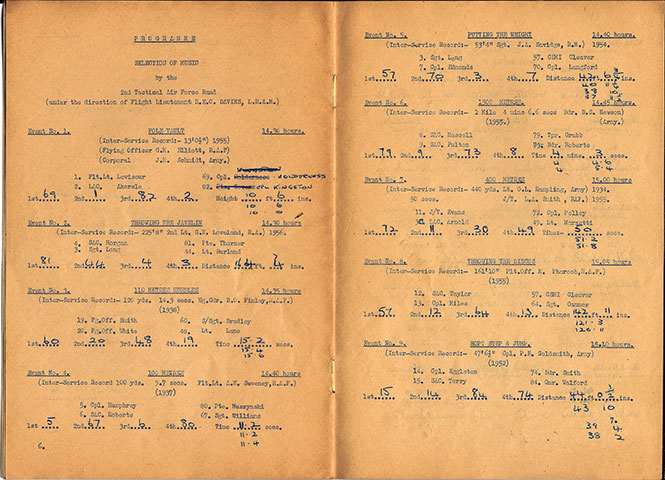 PROGRAMME
SELECTION OF MUSIC
by the
2nd Tactical Air Force Band
(under the direction of Flight Lieutenant R.E.C. DAVIES, L.R.A.M.)
Event No. 1. POLE VAULT 14.30 hours.
(Inter-Service Record:- 13'0½") 1955)
(Flying Officer G.M. Elliott, R.A.F)
(Corporal J.K. Schmidt, Army.)
1. Flt.Lt. Levicour 69. Cpl. HOLDROSS
2. LAC. Akerele 82. KINGSTON
1st 69 2nd 1 3rd 82 4th 2 Height 10 ft. 6 ins.
10 6
10 0
Event No. 2. THROWING THE JAVELIN 14.30 hours.
(Inter-Service Record:- 225'8" 2nd Lt. G.M. Loveland, R.A.) 1956.
4. SAC. Morgan 81. Pte. Thormer
3. Sgt. Long 44. Lt. Burland
1st 81 2nd 44 3rd 4 4th 3 Distance ft. ins.
Event No. 3. 110 METRES HURDLES 14.35 hours
(Inter-Service Record:- 120 yds. 14.3 secs. Wg.Cdr. D.O. Finlay, R.A.F)
(1938)
19. Fg.Off. Smith 60. S/Sgt. Bradley
20. Fg.Off. White 48. Lt. Lane
1st 60 2nd 20 3rd 48 4th 19 Time 15.2 secs.
15.4
15.6
Event No. 4. 100 METRES 14.40 hours
(Inter-Service Record 100 yds. 9.7 secs. Flt.Lt. A.W. Sweeney, R.A.F)
(1937)
5. Cpl. Humphrey 80. Pte. Muszynski
6. SAC. Roberts 67. Sgt. Williams
1st 5 2nd 67 3rd 6 4th 80 Time 11.2 secs.
11.2
11.4
6.
Event No. 5. PUTTING THE WEIGHT 14.40 hours.
(Inter-Service Record:- 53'4" Sgt. J.A. Savidge, R.N.) 1954.
3. Sgt. Long 57. CSMI Cleaver
7. Cpl. Edmonds 70. Cpl. Langford
1st 57 2nd 70 3rd 3 4th 7 Distance 42 ft. 6 ins.
Event No. 6. 1500 METRES. 14.45 hours
(Inter-Service Record:- 1 Mile 4 mins 6.6 secs Bdr. B.S. Hewson)
(1955.) (Army.)
8. SLG. Hassell 79. Tpr. Grubb
9. SAC. Pulton 73. Bdr. Roberts
1st 79 2nd 9 3rd 73 4th 8 Time 4 mins. secs.
Event No. 7. 400 METRES 15.00 hours
(Inter-Service Record:- 440 yds. Lt. G.L. Rampling, Army) 1934.
50 secs. J/T. L.L. Smith, RAF). 1955.
11. J/T. Evans 72. Cpl. Pelley
LAC. Arnold 49. Lt. Maragtti
1st 72 2nd 11 3rd 30 4th 49 Time:- 50 secs.
51.2
51.8
Event No. 8. THROWING THE DISCUS 15.05 hours
(Inter-Service Record:- 161'10" Plt.Off. M. Pharaoh, R.A.F.)
(1955)
12. SAC. Taylor 57. CSMI Cleaver
13. Cpl. Miles 64. Sgt. Cumner
1st 57 2nd 12 3rd 64 4th 13 Distance 142 ft. 11 ins.
121.3
120.11
Event No. 9. HOP, STEP & JUMP. 15.10 hours.
(Inter-Service Record:- 47'6½" Cpl. P.R. Goldsmith, Army)
(1952)
14. Cpl. Eggleton 74. Bdr. Smith
15. SAC. Terry 84. Gnr. Walford
1st 15 2nd 14 3rd 84 4th 74 Distance 44 ft. 0½ ins.
43 10
39 7
38 2